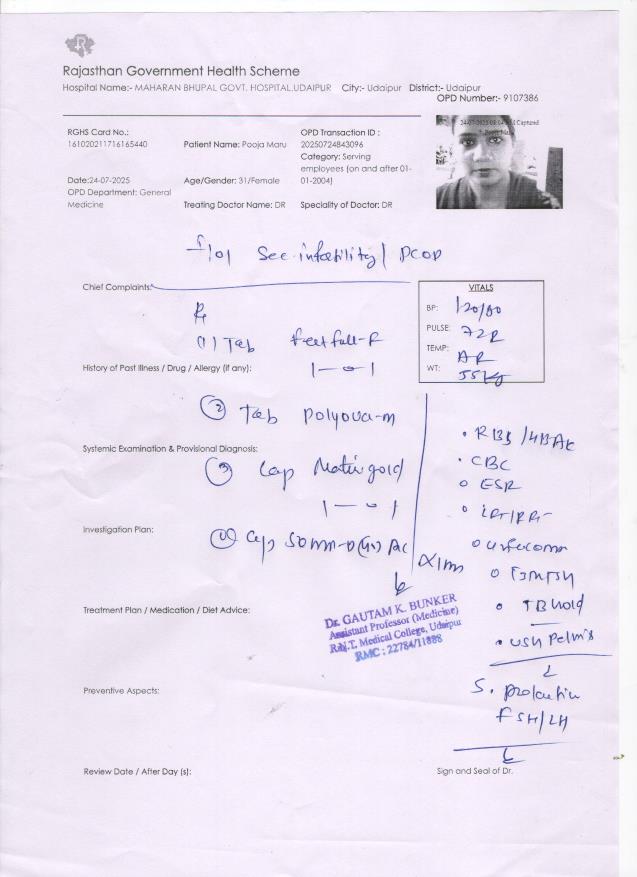 Rajasthan Government Health Scheme
Hospital Name:- MAHARAN BHUPAL GOVT. HOSPITAL,UDAIPUR City:- Udaipur District:- Udaipur
OPD Number:- 9107386
RGHS Card No.:
161020211716165440
Patient Name: Pooja Maru
OPD Transaction ID :
20250724843096
Category: Serving
employees (on and after 01-
01-2004)
Date:24-07-2025
OPD Department: General
Medicine
Age/Gender: 31/Female
Treating Doctor Name: DR
Speciality of Doctor: DR
Sec. infertility / PCOD
Chief Complaints:
VITALS
BP: 120/80
PULSE: 72
TEMP:
WT: 55 kg
Rx
(1) Tab
History of Past Illness / Drug / Allergy (if any):
1 — 0 — 1
(2) Tab Polyova-m
Systemic Examination & Provisional Diagnosis:
(3) Cap gold
1 — 0 — 1
Investigation Plan:
Cap
Treatment Plan / Medication / Diet Advice:
Dr. GAUTAM K. BUNKER
Assistant Professor (Medicine)
R.N.T. Medical College, Udaipur
RMC : 22784/11888
• CBC
• ESR
• TB Gold
• USG Pelvis
S. prolactin
FSH/LH
Preventive Aspects:
Review Date / After Day (s):
Sign and Seal of Dr.